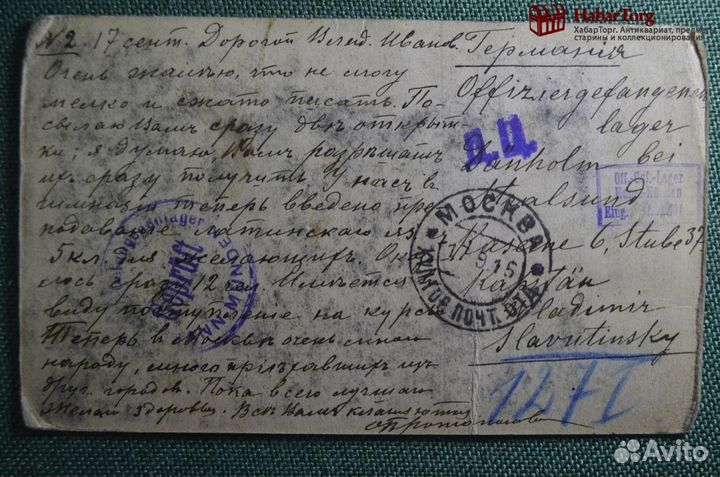 HabarTorg
ХабарТорг. Антиквариат, предметы
старины и коллекционирования
№ 2. 17 сент. Дорогой Влад. Иванов.
Очень жалѣю, что не могу
мелко и сжато писать. По-
сылаю Вамъ сразу двѣ открыт-
ки; я думаю, Вамъ разрѣшатъ
ихъ сразу получить. У насъ в
гимназіи теперь введено пре-
подаванiе латинскаго яз.
5 кл. для желающихъ. Ока-
лось сразу 12 чел. Имѣется
виду поступленiе на курсы
Теперь в Москвѣ очень много
народу, много прiѣхавшихъ изъ
друг. городов. Пока всего лучшаго
желаю здоровья. Всѣ Вамъ кланяются
Германія
Offiziergefangenen
lager
Dänholm bei
Stralsund
Kasane 6, Stube 37
Kapitän
Vladimir
Slavutinsky
Д.Ц.
Off.-Gef.-Lager
Eing.
МОСКВА
ПОЧТ. ОТД.
Geprüft
1271
Avito